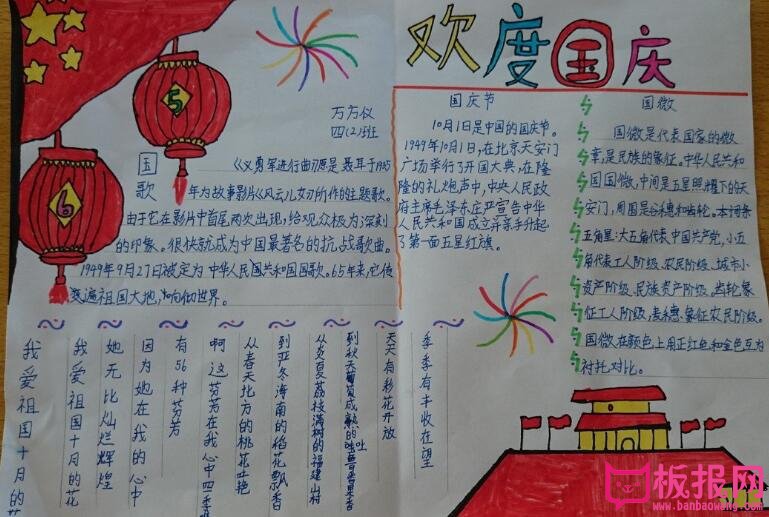 欢度国庆
5
6
万方仪
四(2)班
国歌
《义勇军进行曲》原是聂耳于1935
年为故事影片《风云儿女》所作的主题歌。
由于它在影片中首尾两次出现,给观众极为深刻
的印象。很快就成为中国最著名的抗战歌曲。
1949年9月27日被定为中华人民共和国国歌。65年来,它传
遍祖国大地,响彻世界。
国庆节
10月1日是中国的国庆节。
1949年10月1,在北京天安门
广场举行了开国大典,在隆
隆的礼炮声中,中央人民政
府主席毛泽东庄严宣告中华
人民共和国成立并亲手升起
了第一面五星红旗。
国徽
国徽是代表国家的徽
章,是民族的象征。中华人民共和
国国徽,中间是五星照耀下的天
安门,周围是谷穗和齿轮。本词条
五角星:大五角代表中国共产党,小五
角代表工人阶级、农民阶级、城市小
资产阶级、民族资产阶级。齿轮象
征工人阶级,麦穗象征农民阶级。
国徽在颜色上用正红色和金色互为
衬托对比。
季季有丰收在望
天天有移花开放
到秋天
从炎夏荔枝满树的福建山村
到严冬海南的稻花飘香
从春天北方的桃花吐艳
啊这芬芳在我心中四季
有56种芬芳
因为她在我的心中
她无比灿烂辉煌
我爱祖国十月的花
我爱祖国十月的
板报网
www.banbaowang.com